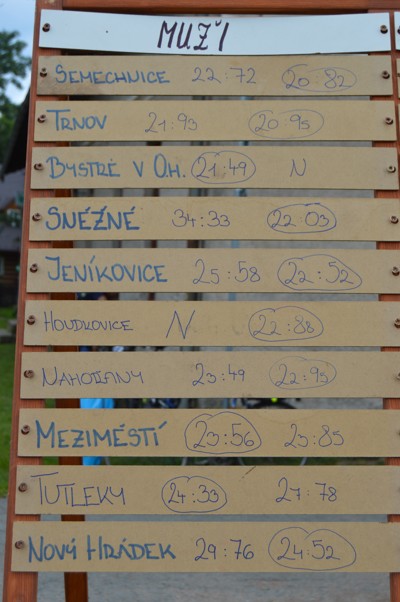 MUŽI
SEMECHNICE 22:72 20:82
TRNOV 21:93 20:95
BYSTRÉ V O.H. 21:49 N
SNĚŽNÉ 34:33 22:03
JENÍKOVICE 25:58 22:52
HOUDKOVICE N 22:88
NAHOŘANY 23:49 22:95
MEZIMĚSTÍ 23:56 23:85
TUTLEKY 24:33 27:78
NOVÝ HRÁDEK 29:76 24:52